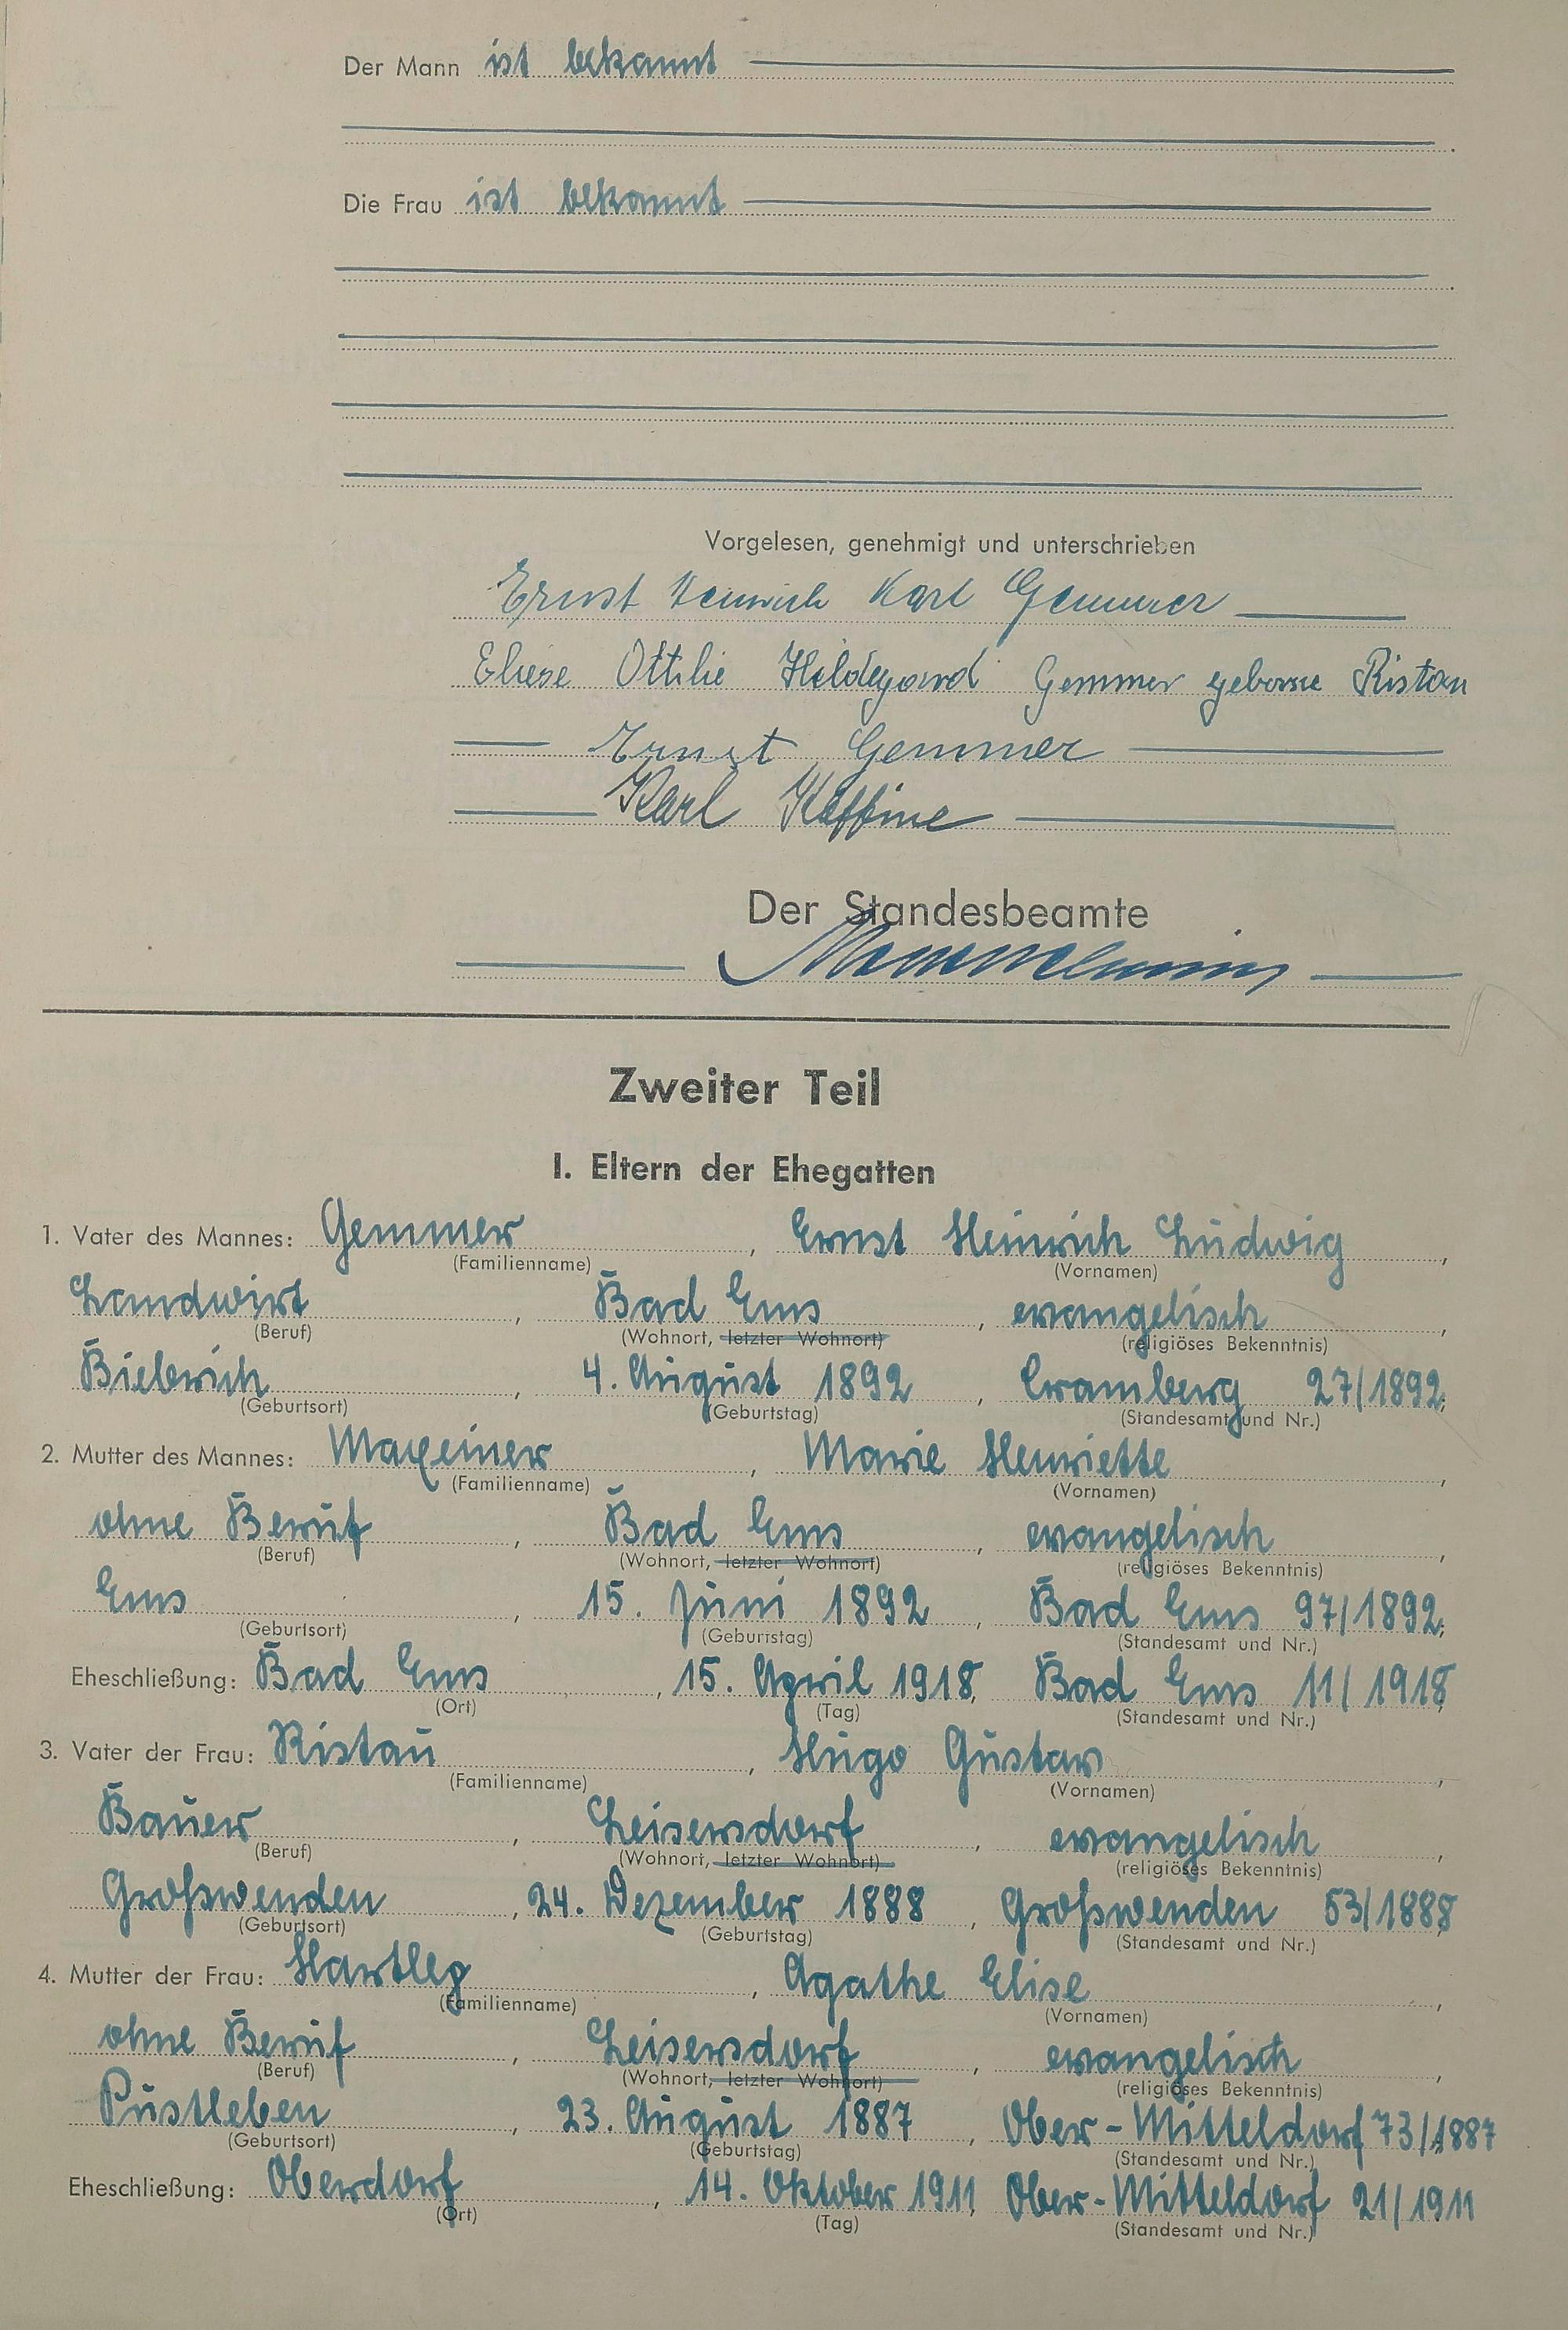 Der Mann ist bekannt
Die Frau ist bekannt
Vorgelesen, genehmigt und unterschrieben
Ernst Heinrich Karl Gemmer
Eliese Ottilie Hildegard Gemmer geborne Ristau
Ernst Gemmer
Karl
Der Standesbeamte
Zweiter Teil
I. Eltern der Ehegatten
1. Vater des Mannes: Gemmer, Ernst Heinrich Ludwig,
(Familienname) (Vornamen)
Landwirt, Bad Ems, evangelisch,
(Beruf) (Wohnort, letzter Wohnort) (religiöses Bekenntnis)
Biebrich, 4. August 1892, Cramberg 27/1892;
(Geburtsort) (Geburtstag) (Standesamt und Nr.)
2. Mutter des Mannes: Maxeiner, Marie Henriette,
(Familienname) (Vornamen)
ohne Beruf, Bad Ems, evangelisch,
(Beruf) (Wohnort, letzter Wohnort) (religiöses Bekenntnis)
Ems, 15. Juni 1892, Bad Ems 97/1892;
(Geburtsort) (Geburtstag) (Standesamt und Nr.)
Eheschließung: Bad Ems, 15. April 1918, Bad Ems 11/1918;
(Ort) (Tag) (Standesamt und Nr.)
3. Vater der Frau: Ristau, Hugo Gustav,
(Familienname) (Vornamen)
Bauer, Leisersdorf, evangelisch,
(Beruf) (Wohnort, letzter Wohnort) (religiöses Bekenntnis)
Großwenden, 24. Dezember 1888, Großwenden 53/1888;
(Geburtsort) (Geburtstag) (Standesamt und Nr.)
4. Mutter der Frau: Hartleg, Agathe Elise,
(Familienname) (Vornamen)
ohne Beruf, Leisersdorf, evangelisch,
(Beruf) (Wohnort, letzter Wohnort) (religiöses Bekenntnis)
Pustleben, 23. August 1887, Ober-Mitteldorf 73/1887
(Geburtsort) (Geburtstag) (Standesamt und Nr.)
Eheschließung: Oberdorf, 14. Oktober 1911, Ober-Mitteldorf 21/1911
(Ort) (Tag) (Standesamt und Nr.)